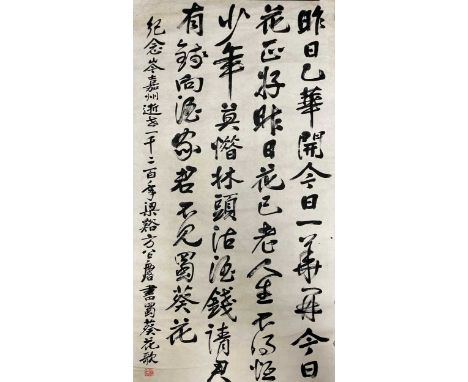 昨日乙華開今日一華開今日
花正好昨日花已老人生不得恒
少年莫惜牀頭沽酒錢請君
有錢向酒家君不見蜀葵花
紀念岑嘉州逝世一千二百年梁谿方召麐書蜀葵花歌